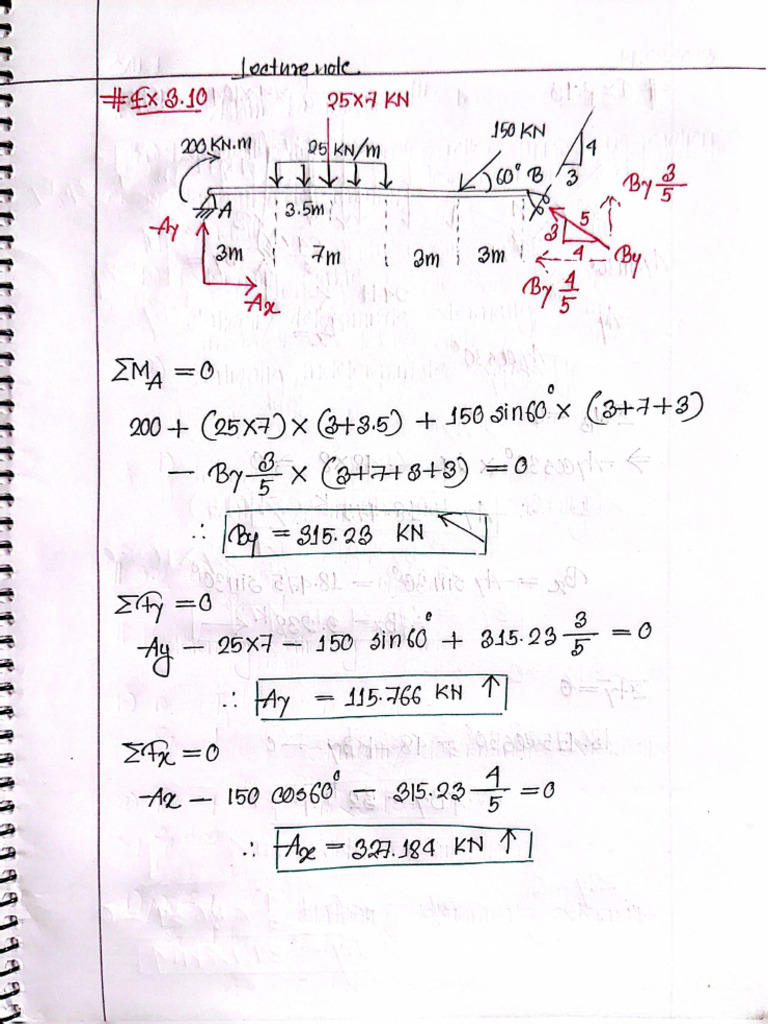 Lecture note.
# Ex 3.10
25×7 KN
200 KN.m
25 KN/m
150 KN
60° B
4
3
By 3/5
A
3.5m
Ay
3m
7m
3m
3m
5
3
4
By
By 4/5
Ax
ΣM_A = 0
200 + (25×7) × (3+3.5) + 150 sin60° × (3+7+3)
- By 3/5 × (3+7+3+3) = 0
∴ By = 315.23 KN
ΣFy = 0
Ay - 25×7 - 150 sin60° + 315.23 3/5 = 0
∴ Ay = 115.766 KN ↑
ΣFx = 0
Ax - 150 cos60° - 315.23 4/5 = 0
∴ Ax = 327.184 KN ↑